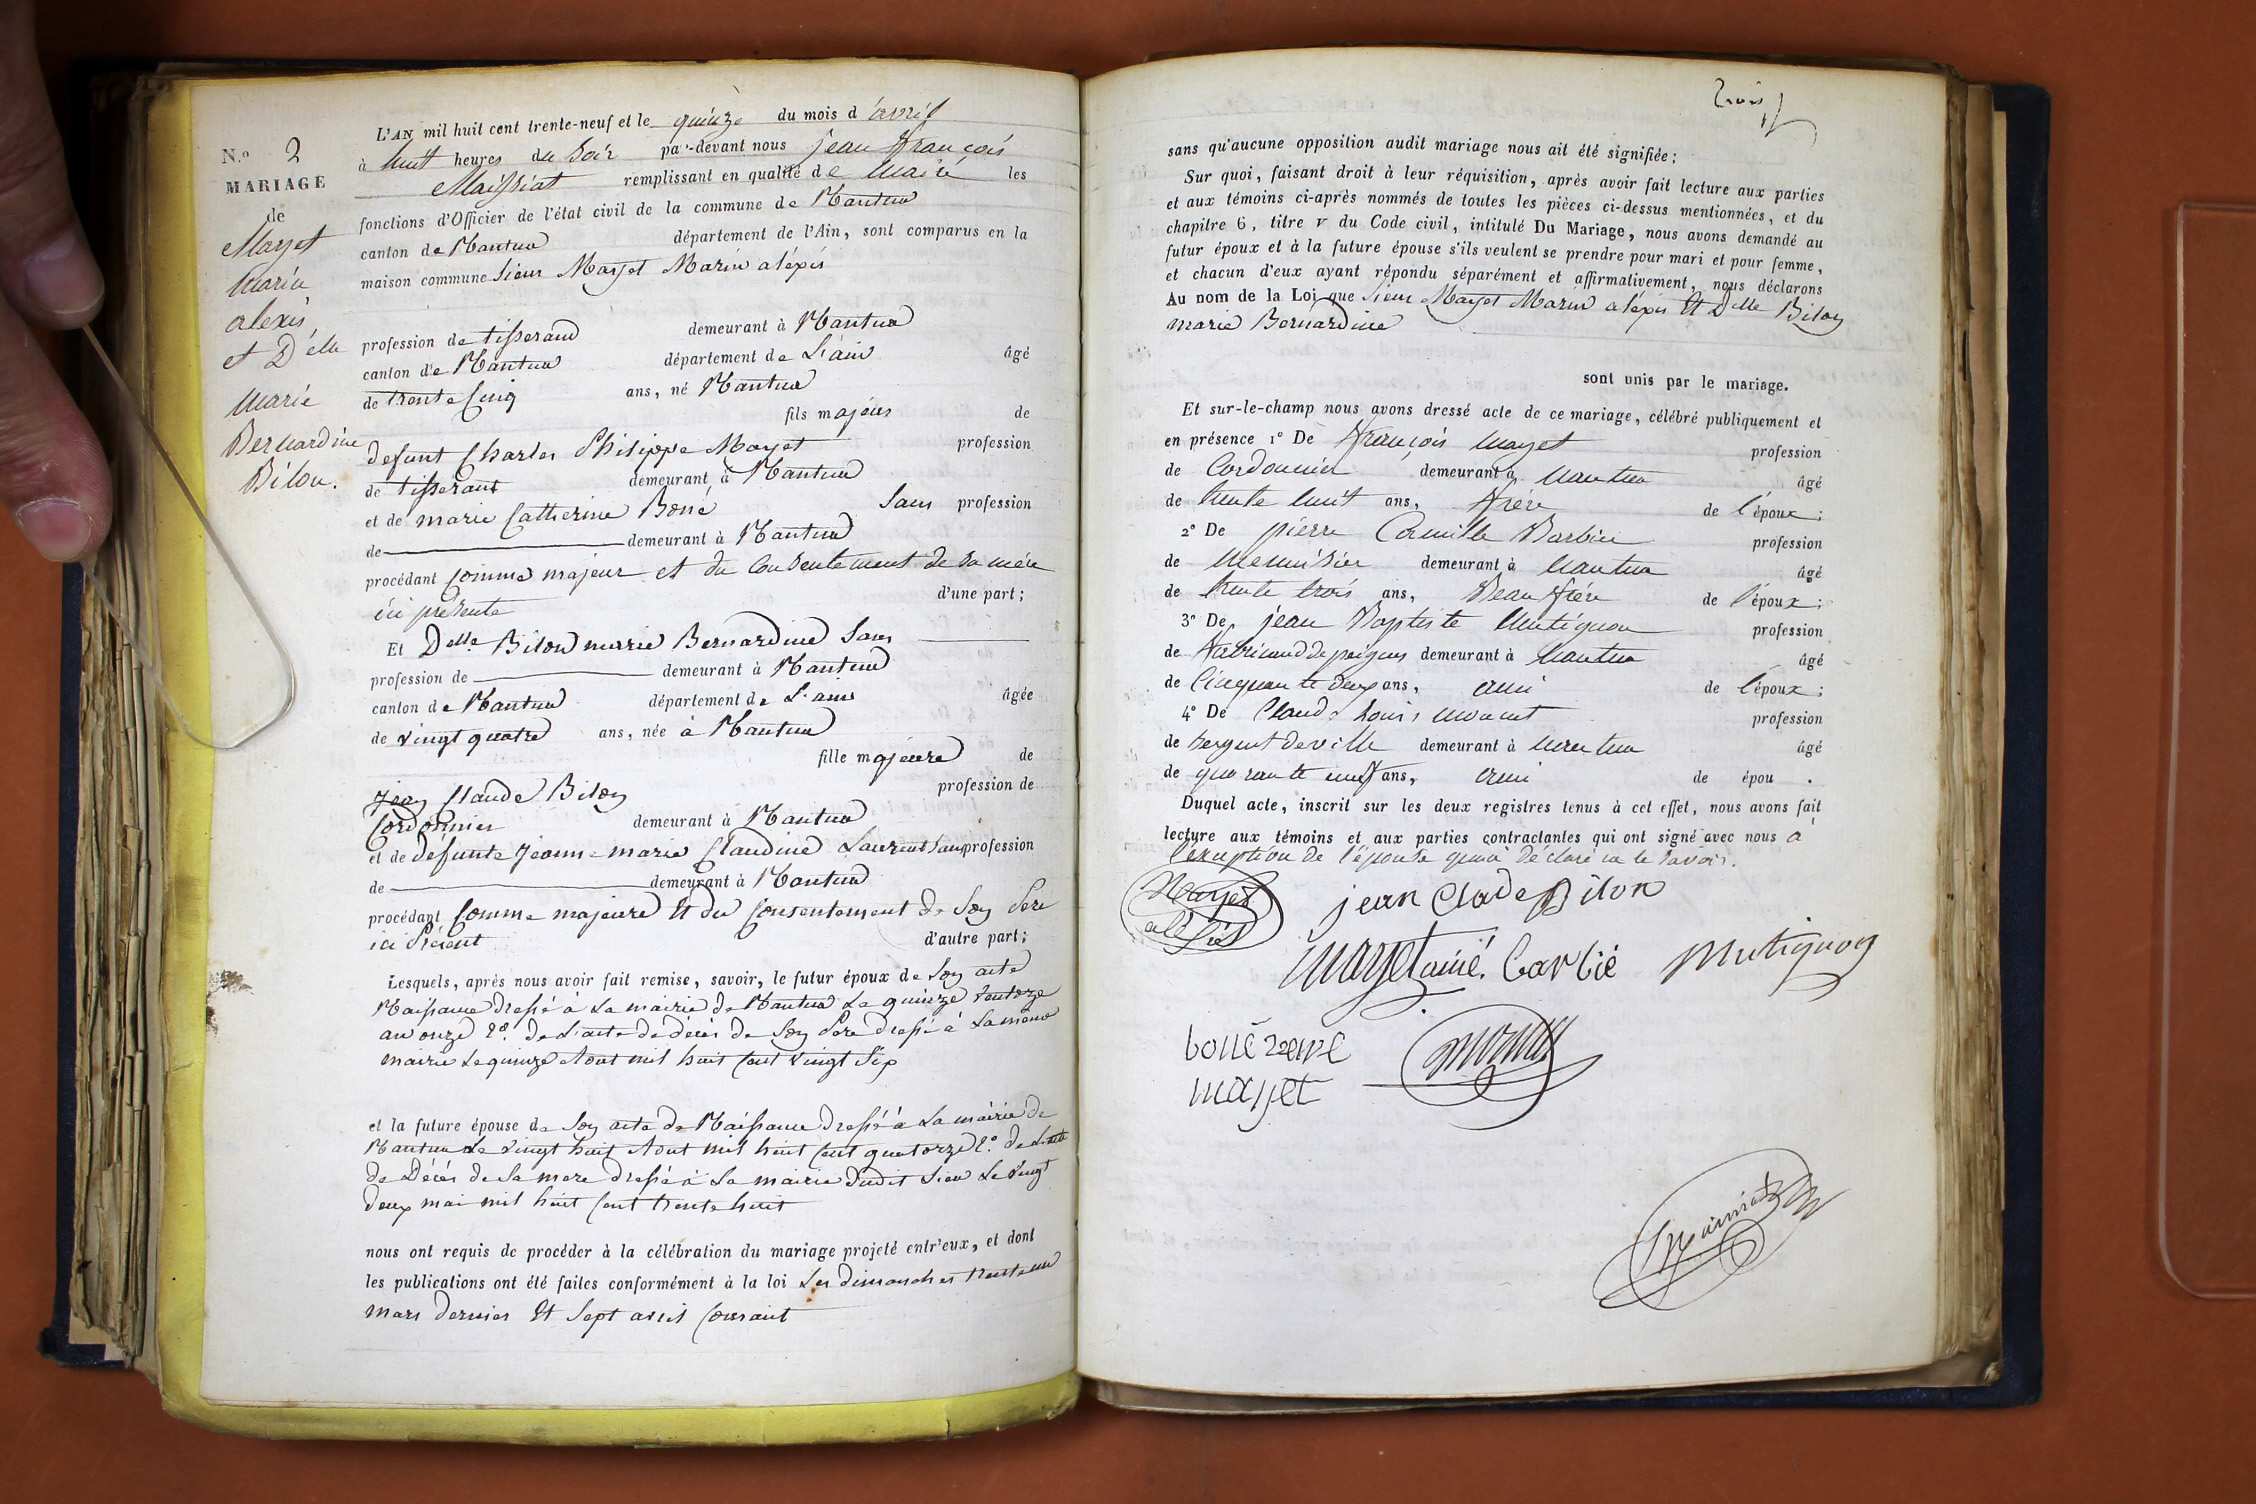 N.o 2
MARIAGE
de
Mayet
Marin
alexis
et Delle
Marie
Bernardine
Bilon.
L'AN mil huit cent trente-neuf et le quinze du mois d'avril
à huit heures du soir par-devant nous jean François
Maissiat remplissant en qualité de Maire les
fonctions d'Officier de l'état civil de la commune de Nantua
canton de Nantua département de l'Ain, sont comparus en la
maison commune Sieur Mayet Marin aléxis
profession de tisserand demeurant à Nantua
canton de Nantua département de L'ain âgé
de trente Cinq ans, né Nantua
fils majeur de
defunt Charles Philippe Mayet profession
de tisserant demeurant à Nantua
et de marie Catherine Boné Sans profession
de demeurant à Nantua
procédant Comme majeur et du Consentement de sa mère
ici présente d'une part;
Et Delle Bilon marie Bernardine Sans
profession de demeurant à Nantua
canton de Nantua département de L'ain âgée
de vingt quatre ans, née à Nantua
fille majeure de
Jean Claude Bilon profession de
Cordonnier demeurant à Nantua
et de défunte Jeanne marie Claudine Laurent Sans profession
de demeurant à Nantua
procédant Comme majeure Et du Consentement de Son Père
ici Présent d'autre part;
Lesquels, après nous avoir fait remise, savoir, le futur époux de Son acte
Naissance dressé à La mairie de Nantua Le quinze Ventoze
an onze 2o. de L'acte de décès de Son Père dressé à La même
mairie Le quinze Aout mil huit Cent vingt Six
et la future épouse de Son acte de Naissance dressé à La mairie de
Nantua Le vingt huit Aout mil huit Cent quatorze 2o. de L'acte
de Décès de Sa mere dressé à La mairie dudit Lieu Le vingt
Deux mai mil huit Cent trente huit
nous ont requis de procéder à la célébration du mariage projeté entr'eux, et dont
les publications ont été faites conformément à la loi Les dimanches trente un
mars dernier Et Sept avril Courant
trois
sans qu'aucune opposition audit mariage nous ait été signifiée;
Sur quoi, faisant droit à leur réquisition, après avoir fait lecture aux parties
et aux témoins ci-après nommés de toutes les pièces ci-dessus mentionnées, et du
chapitre 6, titre V du Code civil, intitulé Du Mariage, nous avons demandé au
futur époux et à la future épouse s'ils veulent se prendre pour mari et pour femme,
et chacun d'eux ayant répondu séparément et affirmativement, nous déclarons
Au nom de la Loi que Sieur Mayet Marin aléxis Et Delle Bilon
marie Bernardine
sont unis par le mariage.
Et sur-le-champ nous avons dressé acte de ce mariage, célébré publiquement et
en présence 1o De François Mayet profession
de Cordonnier demeurant à Nantua âgé
de trente huit ans, frère de l'époux;
2o De pierre Camille Barbier profession
de Menuisier demeurant à Nantua âgé
de trente trois ans, Beau frère de l'époux;
3o De jean Baptiste Mutignon profession
de fabricand de peignes demeurant à Nantua âgé
de Cinquante deux ans, ami de l'époux;
4o De Claude Louis Monnet profession
de Sergent de ville demeurant à Nantua âgé
de quarante neuf ans, ami de épou .
Duquel acte, inscrit sur les deux registres tenus à cet effet, nous avons fait
lecture aux témoins et aux parties contractantes qui ont signé avec nous à
l'exception de l'épouse qui a déclaré ne le savoir.
Mayet jean Clade Bilon
aléxis
Mayet ainé. barbié Mutignon
boné veuve
mayet